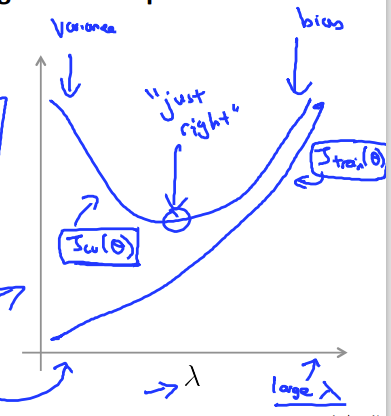 Variance
bias
"just
right"
J train(θ)
Jcv(θ)
λ
large λ